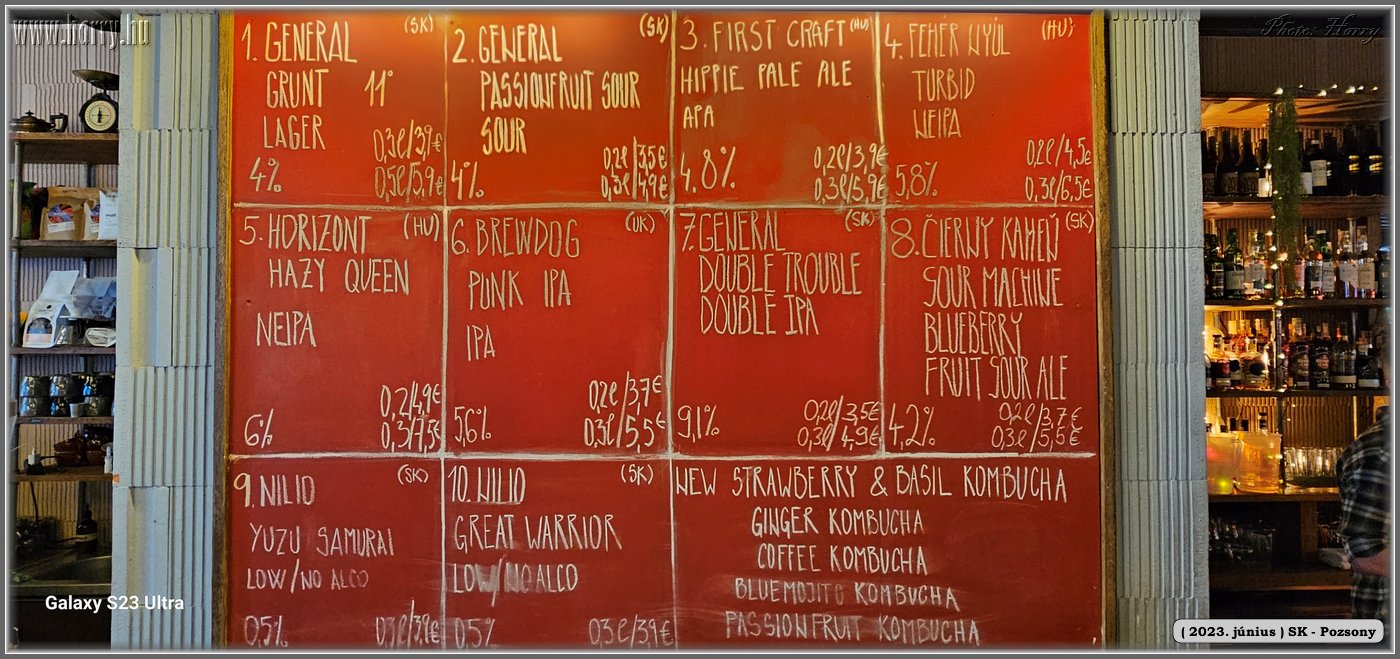 www.horry.hu
Photo: Horry
1. GENERAL (SK)
GRUNT 11°
LAGER
0,3l/3,9€
4% 0,5l/5,9€
2. GENERAL (SK)
PASSIONFRUIT SOUR
SOUR
0,2l/3,5€
4% 0,3l/4,9€
3. FIRST CRAFT (HU)
HIPPIE PALE ALE
APA
0,2l/3,9€
4.8% 0,3l/5,9€
4. FEHÉR NYÚL (HU)
TURBID
NEIPA
0,2l/4,5€
5,8% 0,3l/6,5€
5. HORIZONT (HU)
HAZY QUEEN
NEIPA
0,2/4,9€
6% 0,3/7,5€
6. BREWDOG (UK)
PUNK IPA
IPA
0,2l/3,7€
5,6% 0,3l/5,5€
7. GENERAL (SK)
DOUBLE TROUBLE
DOUBLE IPA
0,2l/3,5€
9,1% 0,3l/4,9€
8. ČIERNY KAMEŇ (SK)
SOUR MACHINE
BLUEBERRY
FRUIT SOUR ALE
0,2l/3,7€
4,2% 0,3l/5,5€
9. NILIO (SK)
YUZU SAMURAI
LOW/NO ALCO
0,5% 0,3l/3,9€
10. NILIO (SK)
GREAT WARRIOR
LOW/NO ALCO
0,5% 0,3l/3,9€
NEW STRAWBERRY & BASIL KOMBUCHA
GINGER KOMBUCHA
COFFEE KOMBUCHA
BLUEMOJITO KOMBUCHA
PASSIONFRUIT KOMBUCHA
Galaxy S23 Ultra
( 2023. június ) SK - Pozsony